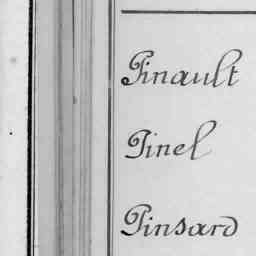 Pinault
Pinel
Pinsard